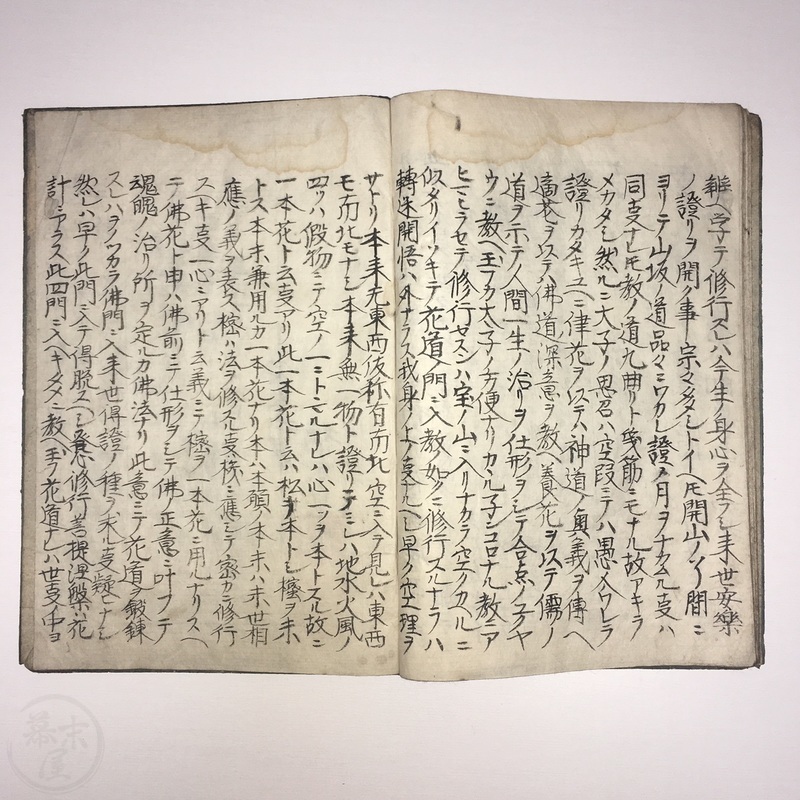 難ヘ学テ修行スレハ今生ノ身心ヲ全フシ来世安樂
ノ證リヲ開ク事宗マタ多シトイヘ𪜈開山ノソノ間ニ
ヨリテ山坂ノ道品々ニワカレ證ノ月ヲナカムル支ハ
同支ナレ𪜈教ノ道九曲リト幾筋ニモナル故アキラ
メカタシ然ルニ太子ノ思召ハ空段ニテハ愚メワレラ
證リカタキユヘニ律花ヲ以テハ神道ノ奥義ヲ傳ヘ
廣花ヲ以テハ佛道ノ深意ヲ教ヘ養花ヲ以テ儒ノ
道ヲ示テ人間一生ノ治リヲ仕形ヲシテ合点ノユクヤ
ウニ教ヘ玉フカ太子ノ方便ナリカヽル子ンコロナル教ニア
ヒミラセテ修行セズンハ宝ノ山ニ入リナカラ空クカヘルニ
似タリイソキテ花道ノ門ニ入教ノ如クニ修行スルナラハ
轉迷開悟ハ外ナラス我身ノ上ノ支ナルヘシ早ク空理ヲ
サトリ本来无東西仮称有南北空ニ入ヲ見レハ東西
モ南北モナシ本来無一物ト證リテミレハ地水火風ノ
四ツハ假物ニテ空ノ一ニトヽマルナレハ心一ツヲ本トスル故ニ
一本花ト云支アリ此一本花ト云ハ松ヲ本トシ檀ヲ末
トス本末兼用ルカ一本花ナリ本ハ本願ノ本末ハ末世相
應ノ義ヲ表ス檀ハ法ヲ修スル支機ニ應シテ密カニ修行
スヘキ支一心ニアリト云義ニテ檀ヲ一本花ニ用ルナリスヘ
テ佛花ト申ハ佛前ニテ仕形ヲシテ佛ノ正意ニ叶フテ
魂魄ノ治リ所ヲ定ルカ佛法ナリ此意ニテ花道ヲ鍛錬
スレハヲノツカラ佛門ニ入来世得證ノ種ヲ求ル支疑ヒナシ
然レハ早ク此門ニ入テ得脱スヘシ發心修行菩提涅槃ハ花
計ニアラス此四門ニ入ヘキタメニ教ヘ玉フ花道ナレハ世支ノ中ヨ
幕末屋